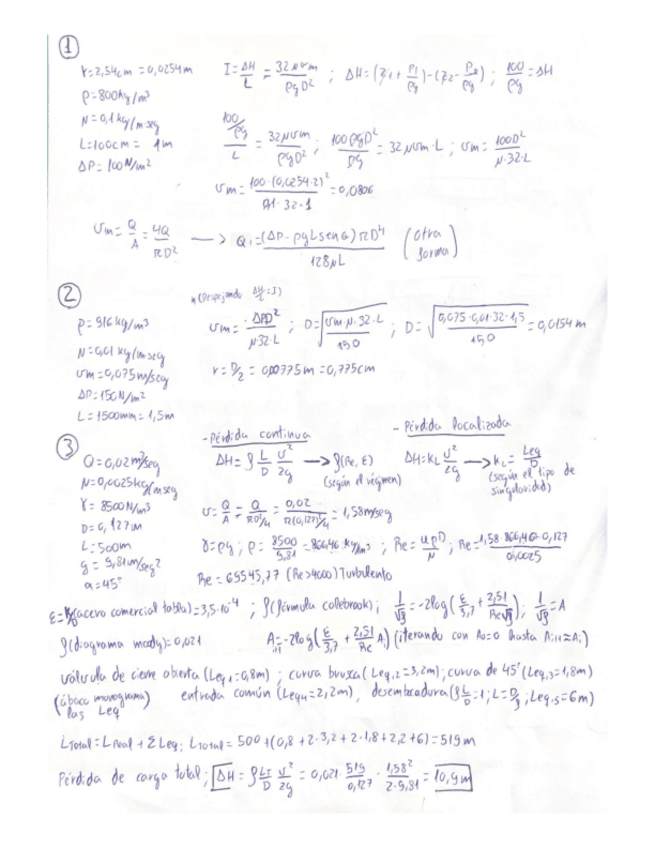 1
r=2,54cm=0,0254m
ρ=800kg/m³
μ=0,1kg/m·seg
L=100cm=1m
ΔP=100N/m²
I=ΔH/L=32μvm/ρgD² ; ΔH=(z₁+P₁/ρg)-(z₂-P₂/ρg) ; 100/ρg=ΔH
100/ρg/L=32μvm/ρgD² ; 100ρgD²/ρg=32μvm·L ; vm=100D²/μ·32·L
vm=100·(0,0254·2)²/0,1·32·1=0,0806
vm=Q/A=4Q/πD² → Q=(ΔP-ρgLsenθ)πD⁴/128μL (otra forma)
2
ρ=916kg/m³
μ=0,01kg/m·seg
vm=0,075m/seg
ΔP=150N/m²
L=1500mm=1,5m
(Despejando ΔH/L=I)
vm=ΔPD²/μ32·L ; D=√vm·μ·32·L/150 ; D=√0,075·0,01·32·1,5/150=0,0154m
r=D/2=0,00775m=0,775cm
3
Q=0,02m³/seg
μ=0,0025kg/mseg
γ=8500N/m³
D=0,127m
L=500m
g=9,81m/seg²
α=45°
-Pérdida continua
ΔH=f L/D v²/2g → f(Re, E)
(según el régimen)
- Pérdida localizada
ΔH=kL v²/2g → kL=Leq/D
(según el tipo de singularidad)
v=Q/A=Q/πD²/4=0,02/π(0,127)²/4=1,58m/seg
γ=ρg ; ρ=8500/9,81=866,46kg/m³ ; Re=vρD/μ ; Re=1,58·866,46·0,127/0,0025
Re=69545,77 (Re>4000) Turbulento
(acero comercial tabla)=3,5·10⁻⁴ ; f(fórmula colebrook) ; 1/√f=-2log(ε/3,7+2,51/Re√f) ; 1/√f=A
f(diagrama moody)=0,021
Aᵢ₊₁=-2log(ε/3,7+2,51/Re Aᵢ) (iterando con A₀=0 hasta Aᵢ₊₁≈Aᵢ)
válvula de cierre abierta (Leq,1=0,8m) ; curva brusca (Leq,2=3,2m) ; curva de 45° (Leq,3=1,8m)
(ábaco monograma) las Leq
entrada común (Leq4=2,2m), desembocadura (f L/D=1 ; L=D/f ; Leq,5=6m)
LTotal=LReal+ΣLeq ; LTotal=500+(0,8+2·3,2+2·1,8+2,2+6)=519m
Pérdida de carga total ; ΔH=f LT/D v²/2g=0,021·519/0,127·1,58²/2·9,81=10,9m